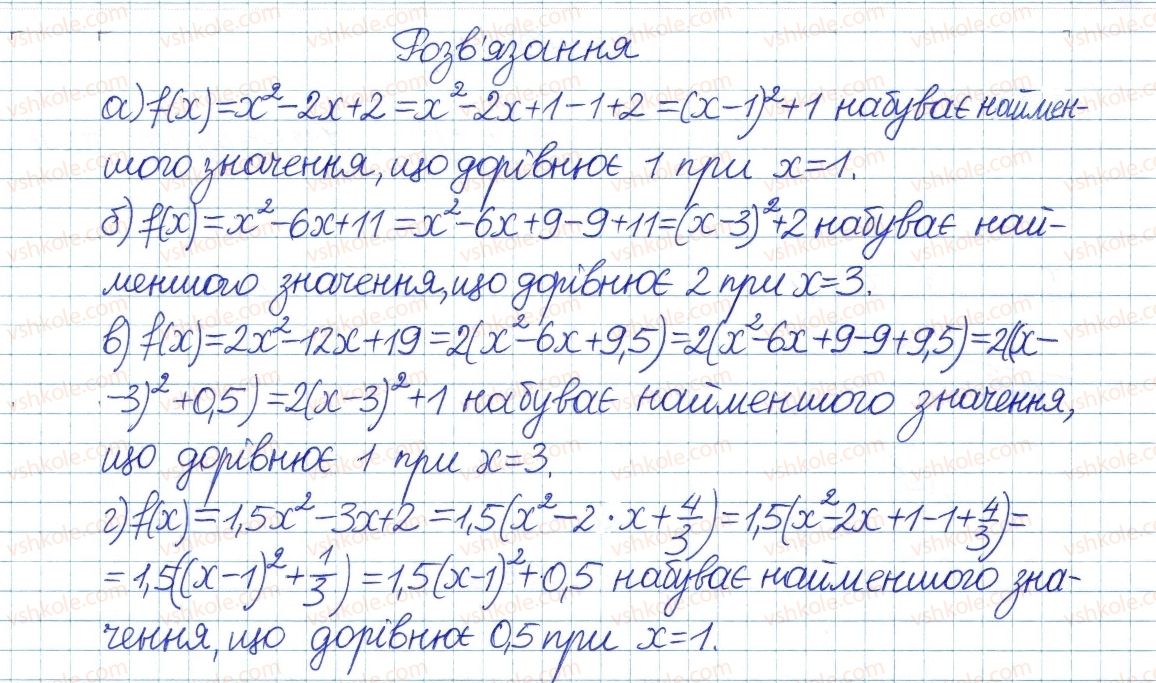 Розв'язання
а) f(x)=x²-2x+2=x²-2x+1-1+2=(x-1)²+1 набуває наймен-
шого значення, що дорівнює 1 при x=1.
б) f(x)=x²-6x+11=x²-6x+9-9+11=(x-3)²+2 набуває най-
меншого значення, що дорівнює 2 при x=3.
в) f(x)=2x²-12x+19=2(x²-6x+9,5)=2(x²-6x+9-9+9,5)=2((x-
-3)²+0,5)=2(x-3)²+1 набуває найменшого значення,
що дорівнює 1 при x=3.
г) f(x)=1,5x²-3x+2=1,5(x²-2·x+4/3)=1,5(x²-2x+1-1+4/3)=
=1,5((x-1)²+1/3)=1,5(x-1)²+0,5 набуває найменшого зна-
чення, що дорівнює 0,5 при x=1.
vshkole.com